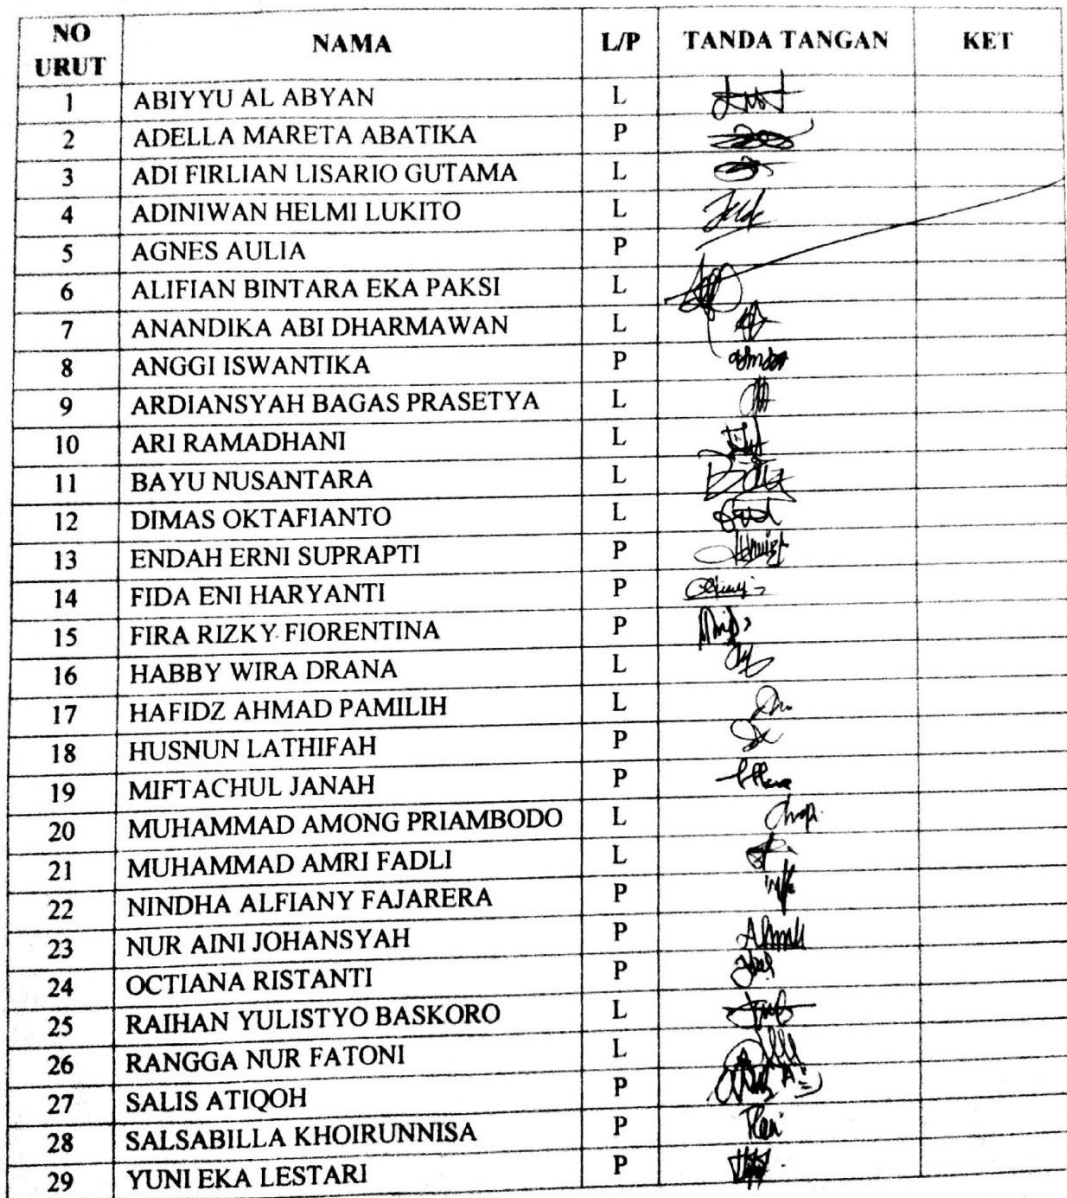 NO URUT NAMA L/P TANDA TANGAN KET
1 ABIYYU AL ABYAN L
2 ADELLA MARETA ABATIKA P
3 ADI FIRLIAN LISARIO GUTAMA L
4 ADINIWAN HELMI LUKITO L
5 AGNES AULIA P
6 ALIFIAN BINTARA EKA PAKSI L
7 ANANDIKA ABI DHARMAWAN L
8 ANGGI ISWANTIKA P
9 ARDIANSYAH BAGAS PRASETYA L
10 ARI RAMADHANI L
11 BAYU NUSANTARA L
12 DIMAS OKTAFIANTO L
13 ENDAH ERNI SUPRAPTI P
14 FIDA ENI HARYANTI P
15 FIRA RIZKY FIORENTINA P
16 HABBY WIRA DRANA L
17 HAFIDZ AHMAD PAMILIH L
18 HUSNUN LATHIFAH P
19 MIFTACHUL JANAH P
20 MUHAMMAD AMONG PRIAMBODO L
21 MUHAMMAD AMRI FADLI L
22 NINDHA ALFIANY FAJARERA P
23 NUR AINI JOHANSYAH P
24 OCTIANA RISTANTI P
25 RAIHAN YULISTYO BASKORO L
26 RANGGA NUR FATONI L
27 SALIS ATIQOH P
28 SALSABILLA KHOIRUNNISA P
29 YUNI EKA LESTARI P